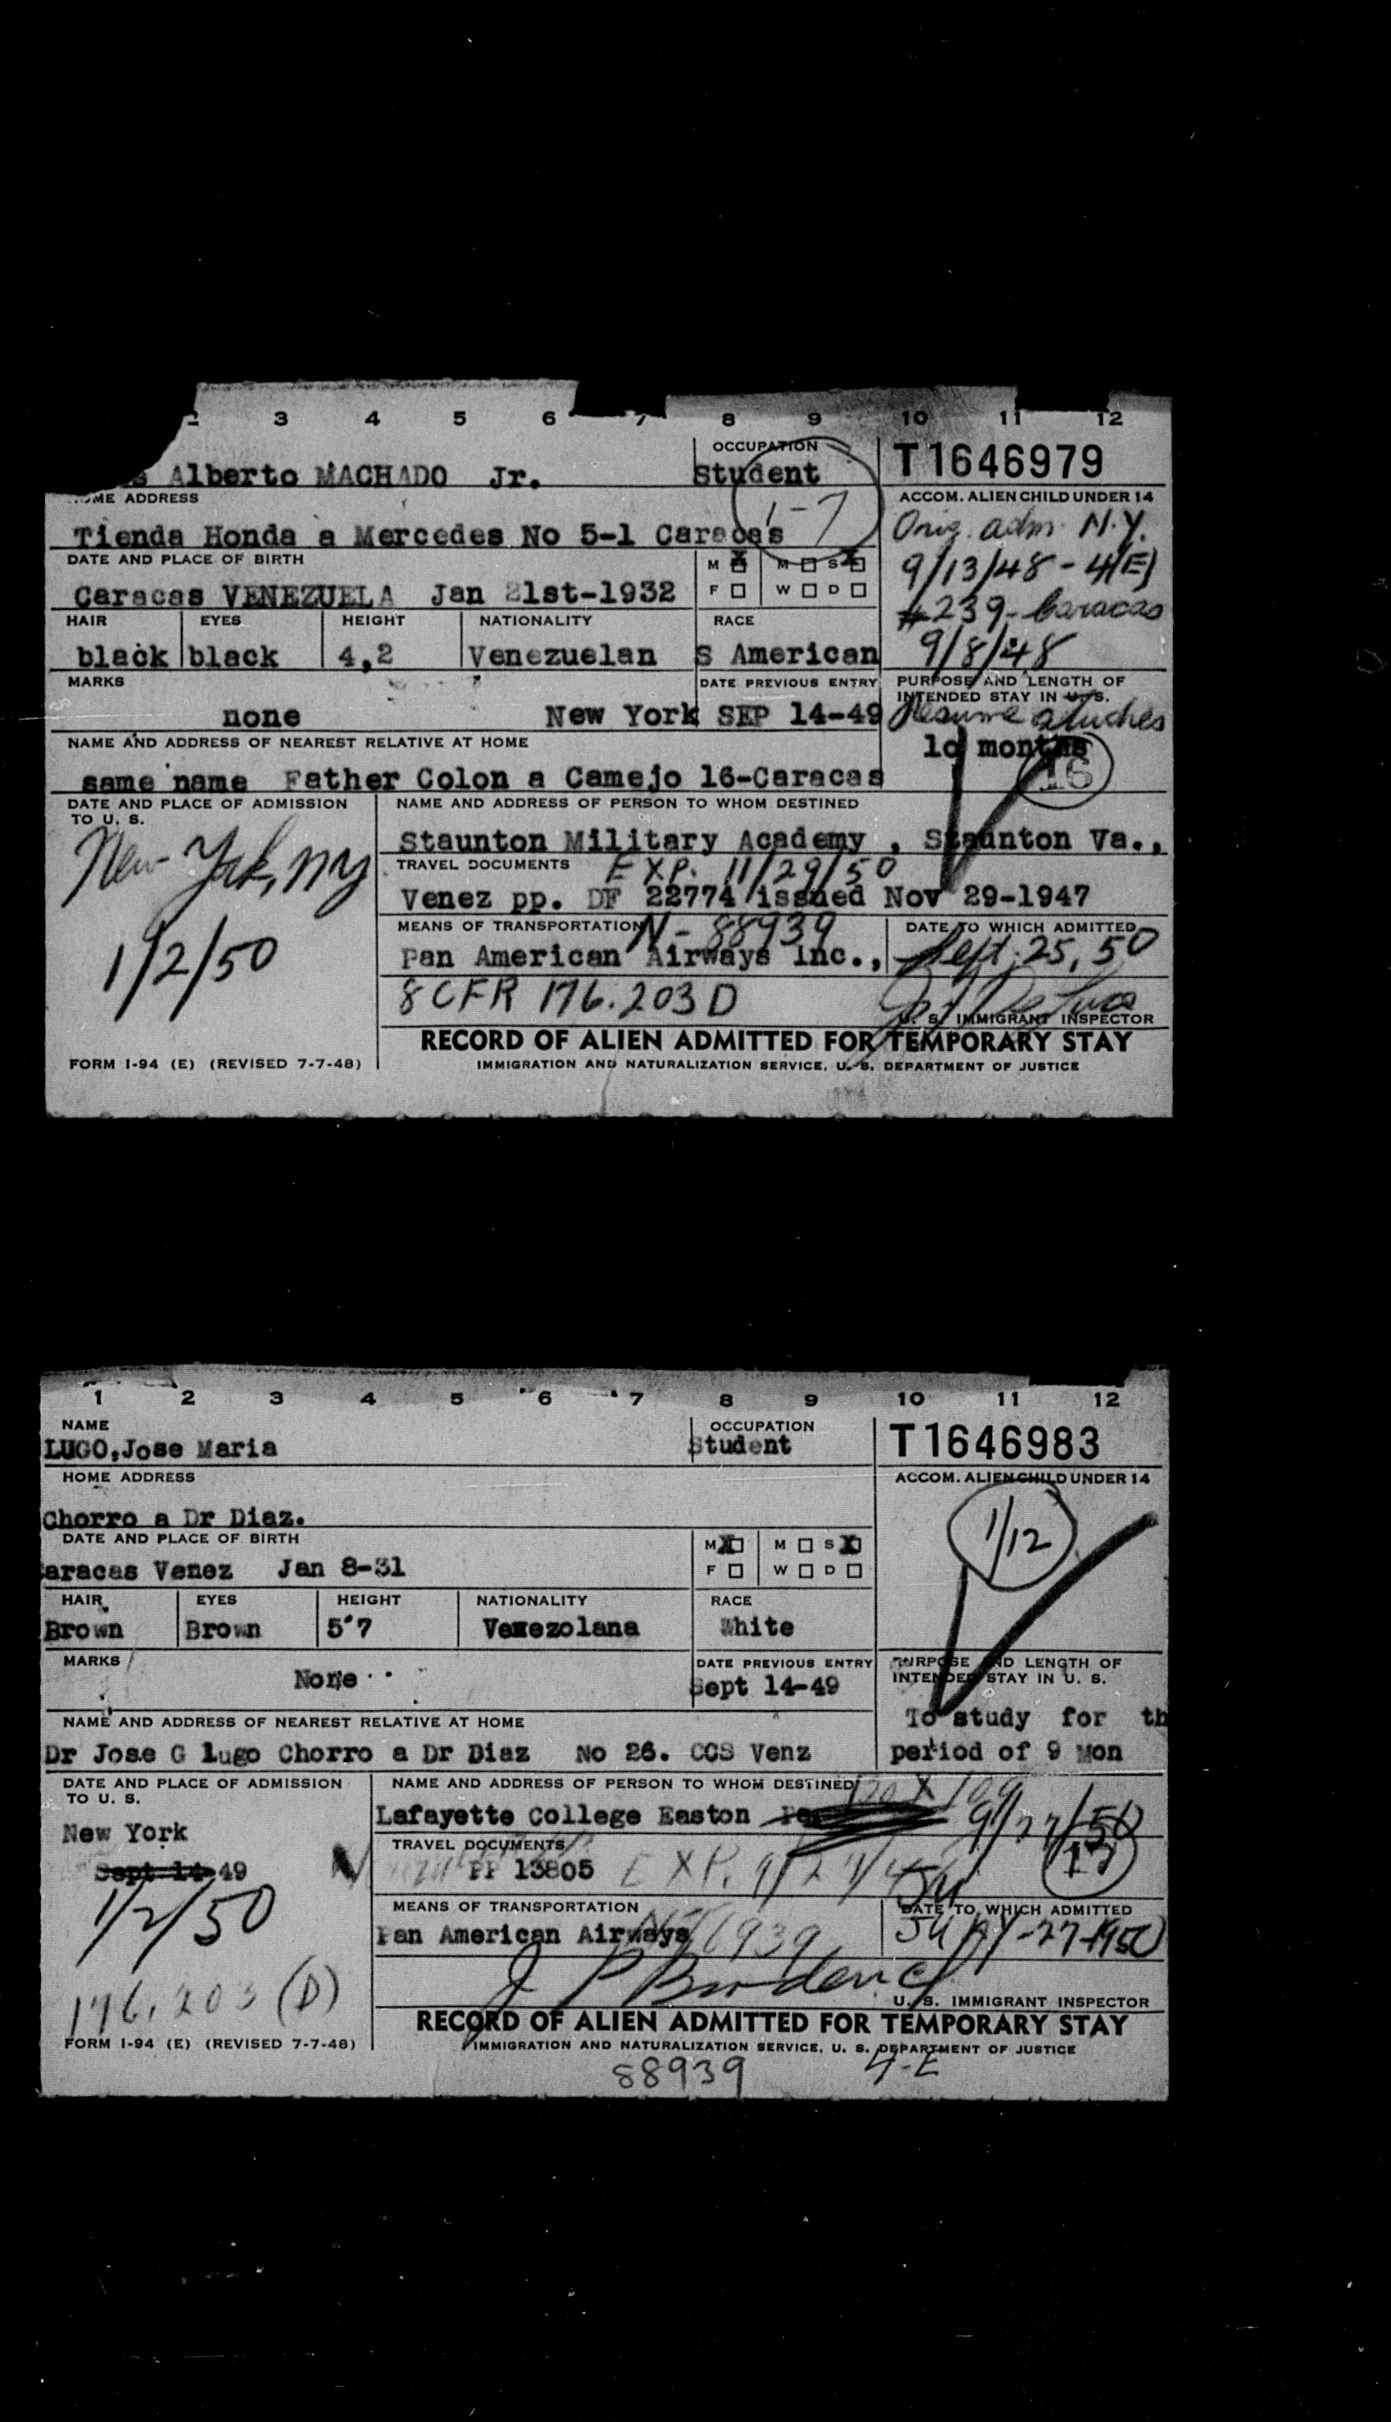 2 3 4 5 6 7 8 9 10 11 12
Alberto MACHADO Jr.
OCCUPATION
Student
T1646979
HOME ADDRESS
1-7
Tienda Honda a Mercedes No 5-1 Caracas
ACCOM. ALIEN CHILD UNDER 14
Orig. adm. N.Y.
9/13/48 - 4(E)
#239-Caracas
9/8/48
DATE AND PLACE OF BIRTH
M X M S X
F W D
Caracas VENEZUELA Jan 21st-1932
HAIR EYES HEIGHT NATIONALITY RACE
black black 4,2 Venezuelan S American
MARKS
DATE PREVIOUS ENTRY
PURPOSE AND LENGTH OF
INTENDED STAY IN U. S.
none New York SEP 14-49
Resume studies
10 months
16
NAME AND ADDRESS OF NEAREST RELATIVE AT HOME
same name Father Colon a Camejo 16-Caracas
DATE AND PLACE OF ADMISSION
TO U. S.
New York, NY
1/2/50
NAME AND ADDRESS OF PERSON TO WHOM DESTINED
Staunton Military Academy , Staunton Va.,
TRAVEL DOCUMENTS EXP. 11/29/50
Venez pp. DF 22774 issued Nov 29-1947
MEANS OF TRANSPORTATION N-88939
DATE TO WHICH ADMITTED
Pan American Airways Inc., Sept. 25, 50
8 CFR 176.203 D
U. S. IMMIGRANT INSPECTOR
RECORD OF ALIEN ADMITTED FOR TEMPORARY STAY
FORM I-94 (E) (REVISED 7-7-48)
IMMIGRATION AND NATURALIZATION SERVICE, U. S. DEPARTMENT OF JUSTICE
1 2 3 4 5 6 7 8 9 10 11 12
NAME
LUGO,Jose Maria
OCCUPATION
Student
T1646983
HOME ADDRESS
ACCOM. ALIEN CHILD UNDER 14
1/12
Chorro a Dr Diaz.
DATE AND PLACE OF BIRTH
M X M S X
F W D
aracas Venez Jan 8-31
HAIR EYES HEIGHT NATIONALITY RACE
Brown Brown 5'7 Venezolana White
MARKS
DATE PREVIOUS ENTRY
PURPOSE AND LENGTH OF
INTENDED STAY IN U. S.
None Sept 14-49
To study for th
period of 9 Mon
NAME AND ADDRESS OF NEAREST RELATIVE AT HOME
Dr Jose G Lugo Chorro a Dr Diaz No 26. CCS Venz
DATE AND PLACE OF ADMISSION
TO U. S.
New York
Sept 14-49
1/2/50
176.203 (D)
NAME AND ADDRESS OF PERSON TO WHOM DESTINED
Lafayette College Easton
9/27/50
17
TRAVEL DOCUMENTS
PP 13805 EXP.
MEANS OF TRANSPORTATION
DATE TO WHICH ADMITTED
Pan American Airways
JULY-27-1950
U. S. IMMIGRANT INSPECTOR
RECORD OF ALIEN ADMITTED FOR TEMPORARY STAY
FORM I-94 (E) (REVISED 7-7-48)
IMMIGRATION AND NATURALIZATION SERVICE, U. S. DEPARTMENT OF JUSTICE
88939 4-E